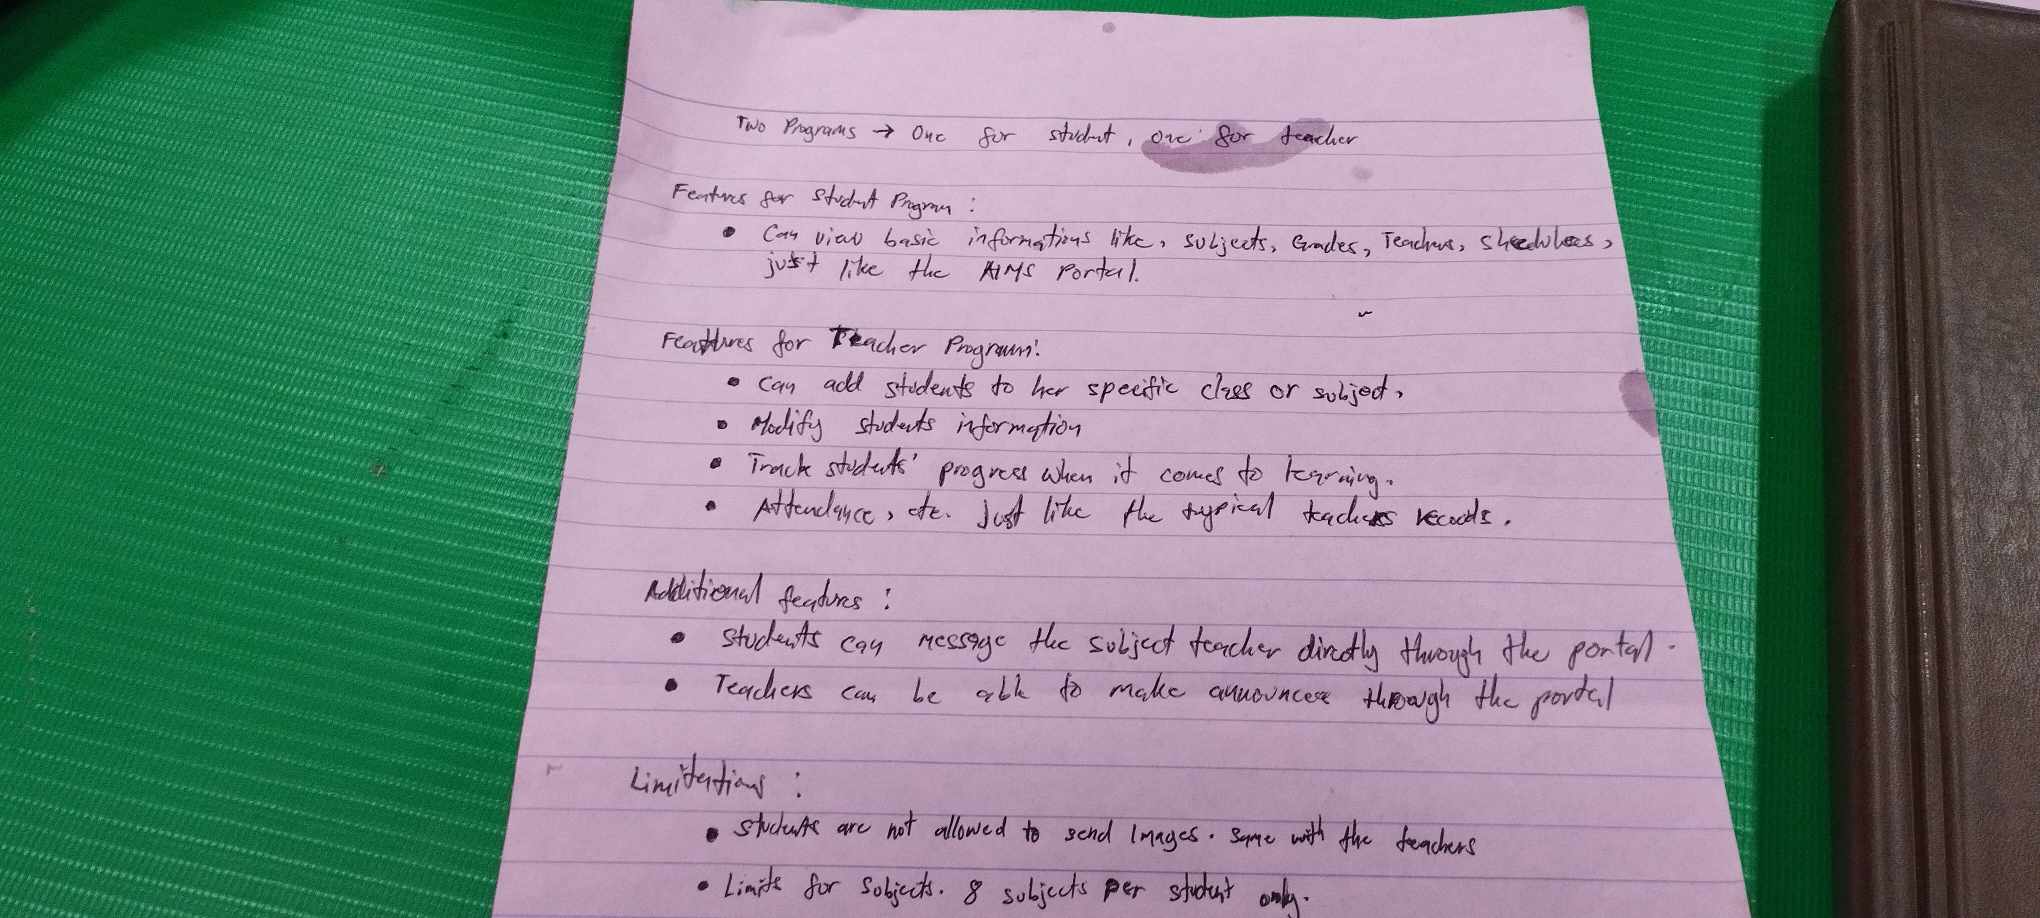 Two Programs → One for student, one for teacher
Features for Student Program:
• Can view basic informations like, subjects, Grades, Teachers, Shcedules,
just like the AIMS Portal.
Features for Teacher Program:
• Can add students to her specific class or subject.
• Modify students information
• Track students' progress when it comes to learning.
• Attendance, etc. Just like the typical teachers records.
Additional features:
• Students can message the subject teacher directly through the portal.
• Teachers can be able to make announces through the portal
Limitations:
• Students are not allowed to send Images. Same with the teachers
• Limits for Subjects. 8 subjects per student only.